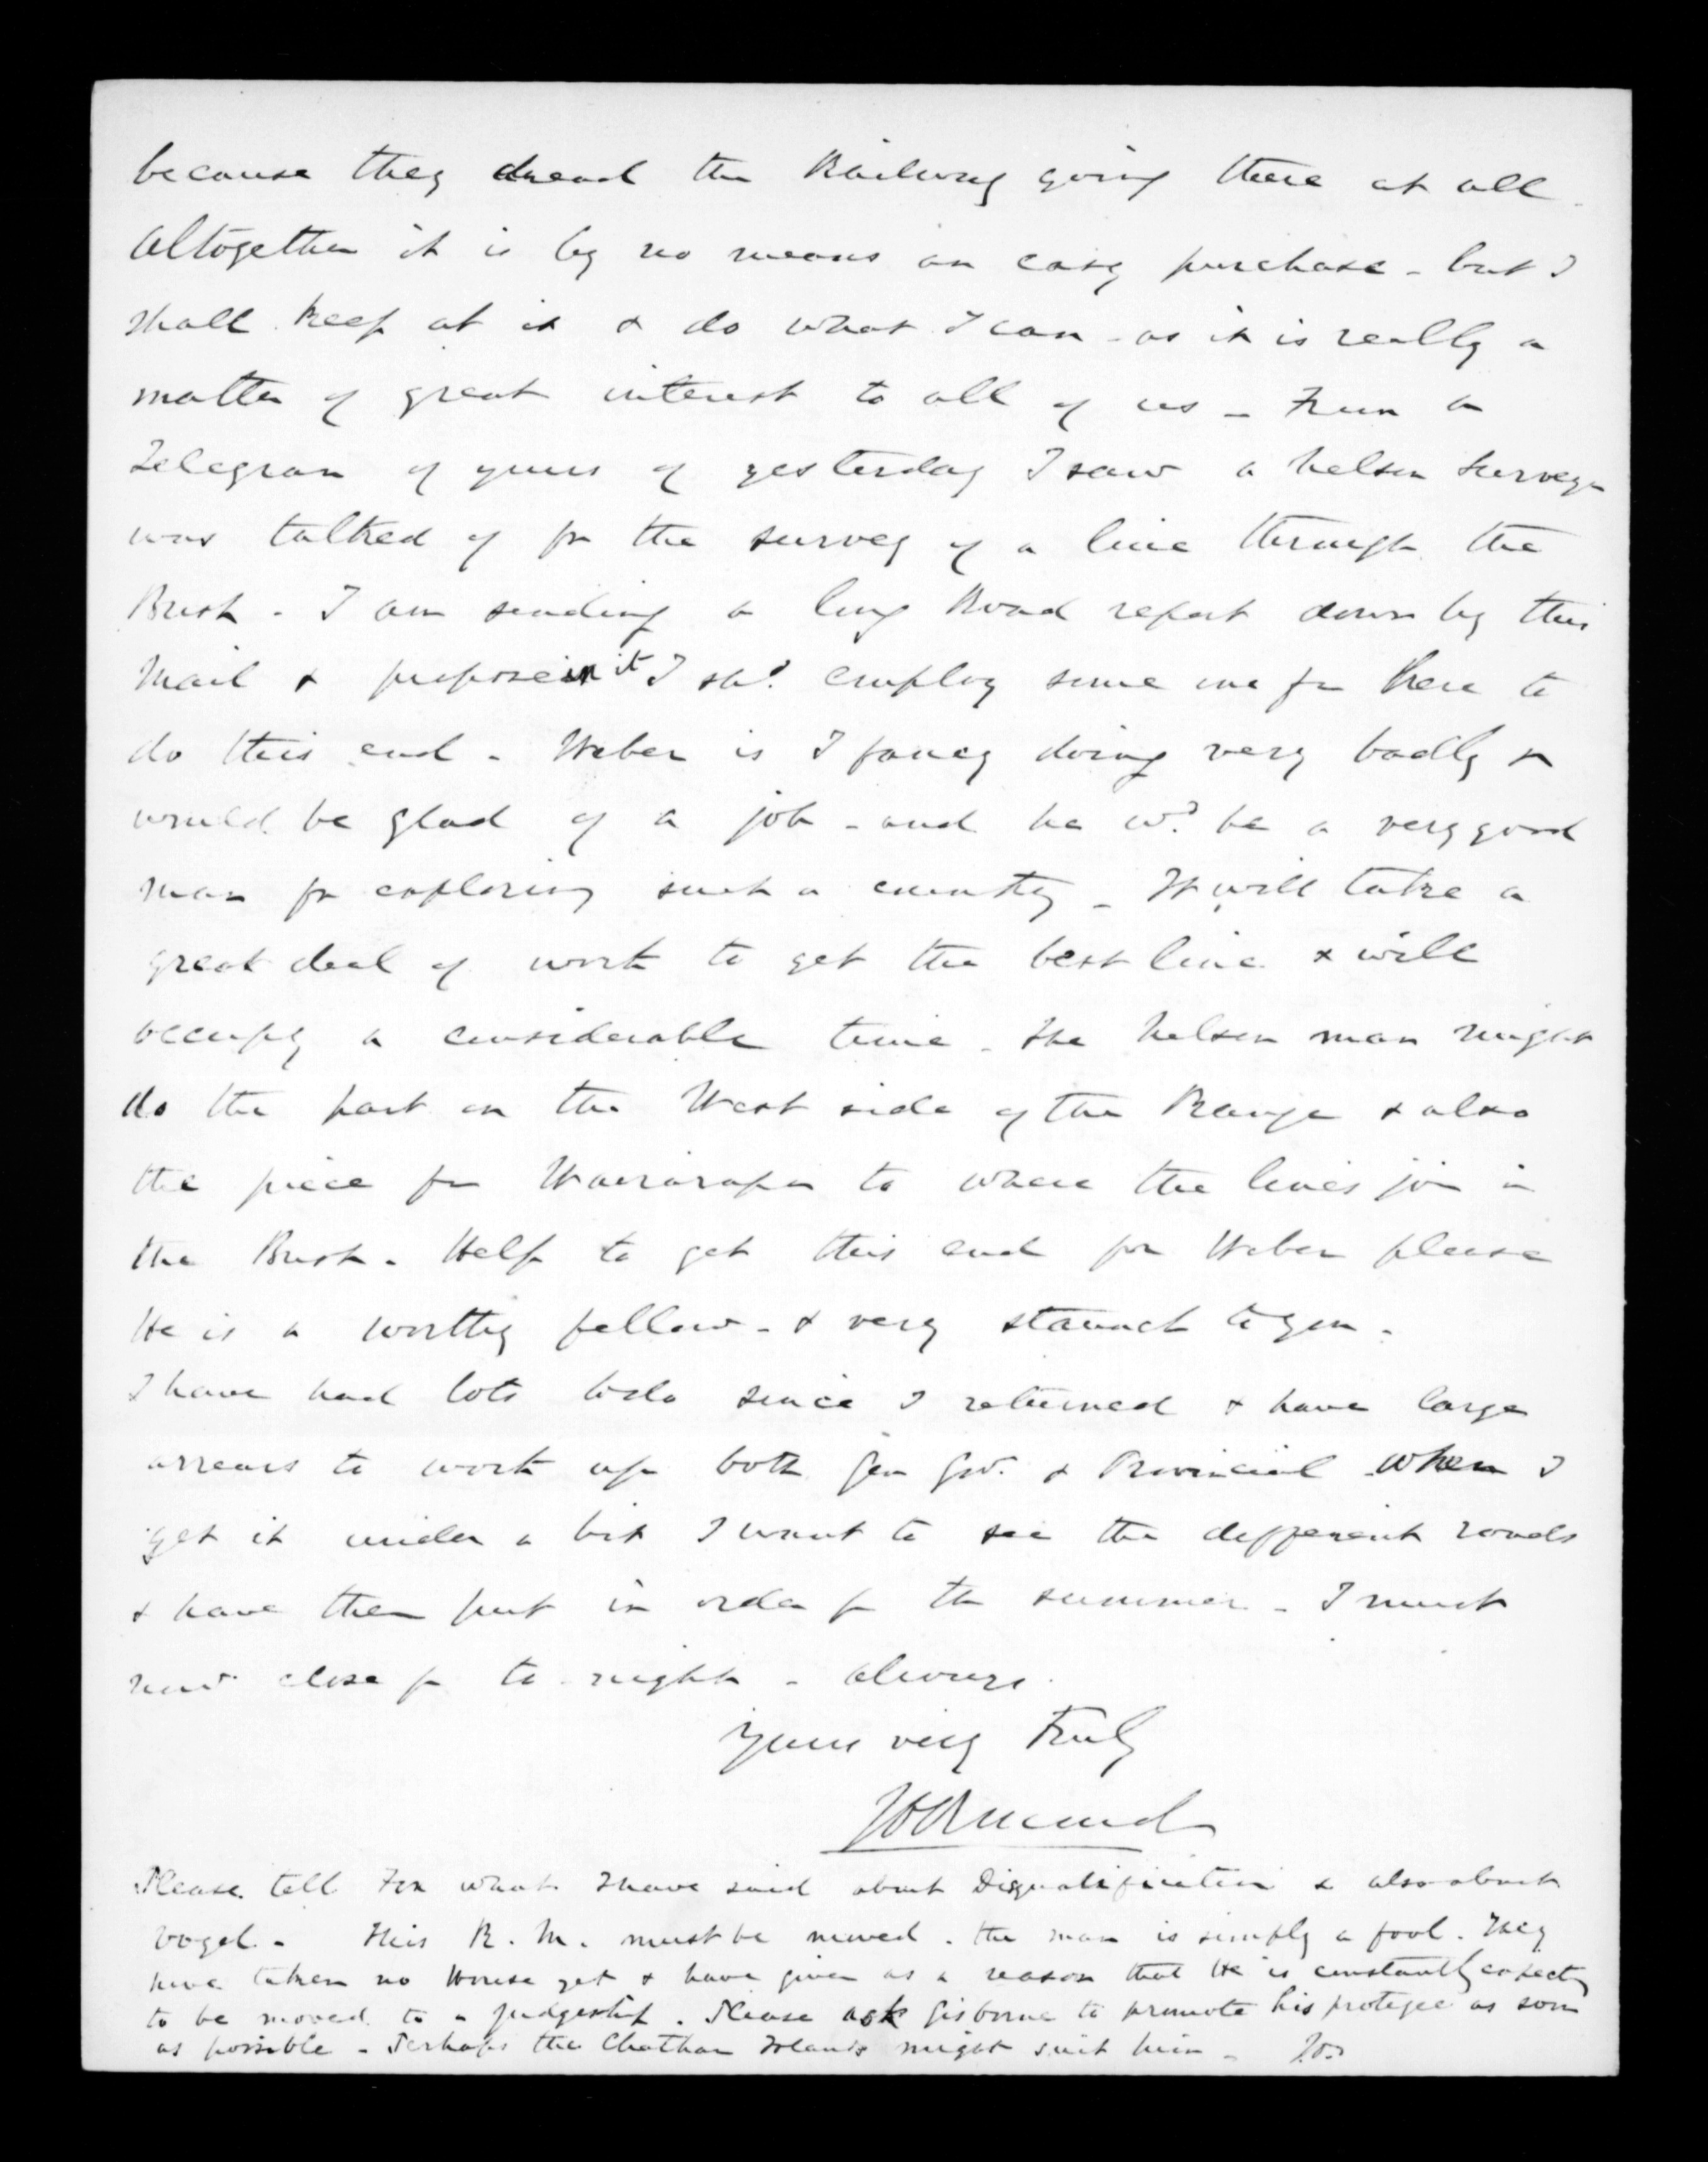 because they dread the Railway going there at all.
Altogether it is by no means an easy purchase - but I
shall keep at it & do what I can - as it is really a
matter of great interest to all of us - From a
Telegram of yours of yesterday I saw a Nelson Surveyor
was talked of for the survey of a line through the
Bush - I am sending a long Road report down by this
Mail & propose in it I shd. employ some one fr here to
do this end - Weber is I fancy doing very badly &
would be glad of a job - and he wd. be a very good
man for exploring such a country - It will take a
great deal of work to get the best line & will
occupy a considerable time - the Nelson man might
do the part on the West side of the Range & also
the piece fr Wairarapa to where the lines join in
the Bush - Help to get this end for Weber please
He is a worthy fellow - & very staunch to you -
I have had lots to do since I returned & have large
arrears to work up both Gen Govt. & Provincial when I
get it under a bit I want to see the different roads
& have them put in order for the summer - I must
now close for to night - always
Yours very truly
JDOrmond
Please tell Fox what I have said about Disqualification & also about
Vogel - This R. M. must be moved - the man is simply a fool. They
have taken no House yet & have given as a reason that He is constantly expectg
to be moved to a Judgeship. Please ask Gisborne to promote his protegee as soon
as possible - Perhaps the Chatham Islands might suit him - JDO